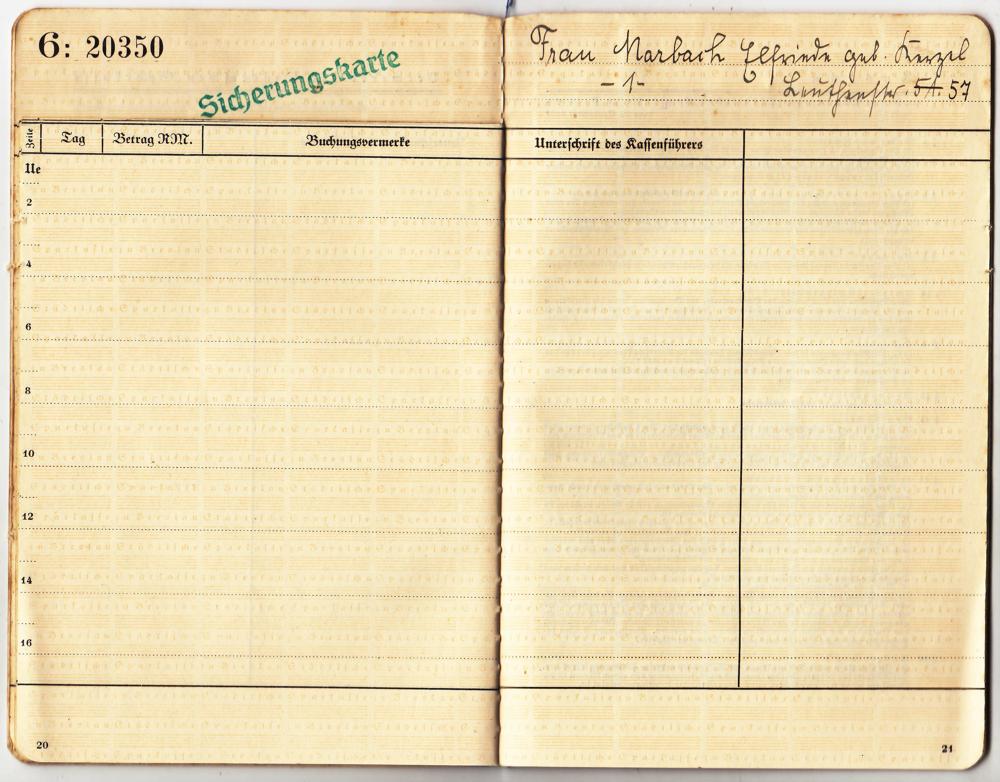 6: 20350
Sicherungskarte
Frau Marbach Elfriede geb. Kerzel
- 1 -
Leuthenstr. 54. 57
Zeile Tag Betrag RM. Buchungsvermerke Unterschrift des Kassenführers
Ue
2
4
6
8
10
12
14
16
20
21